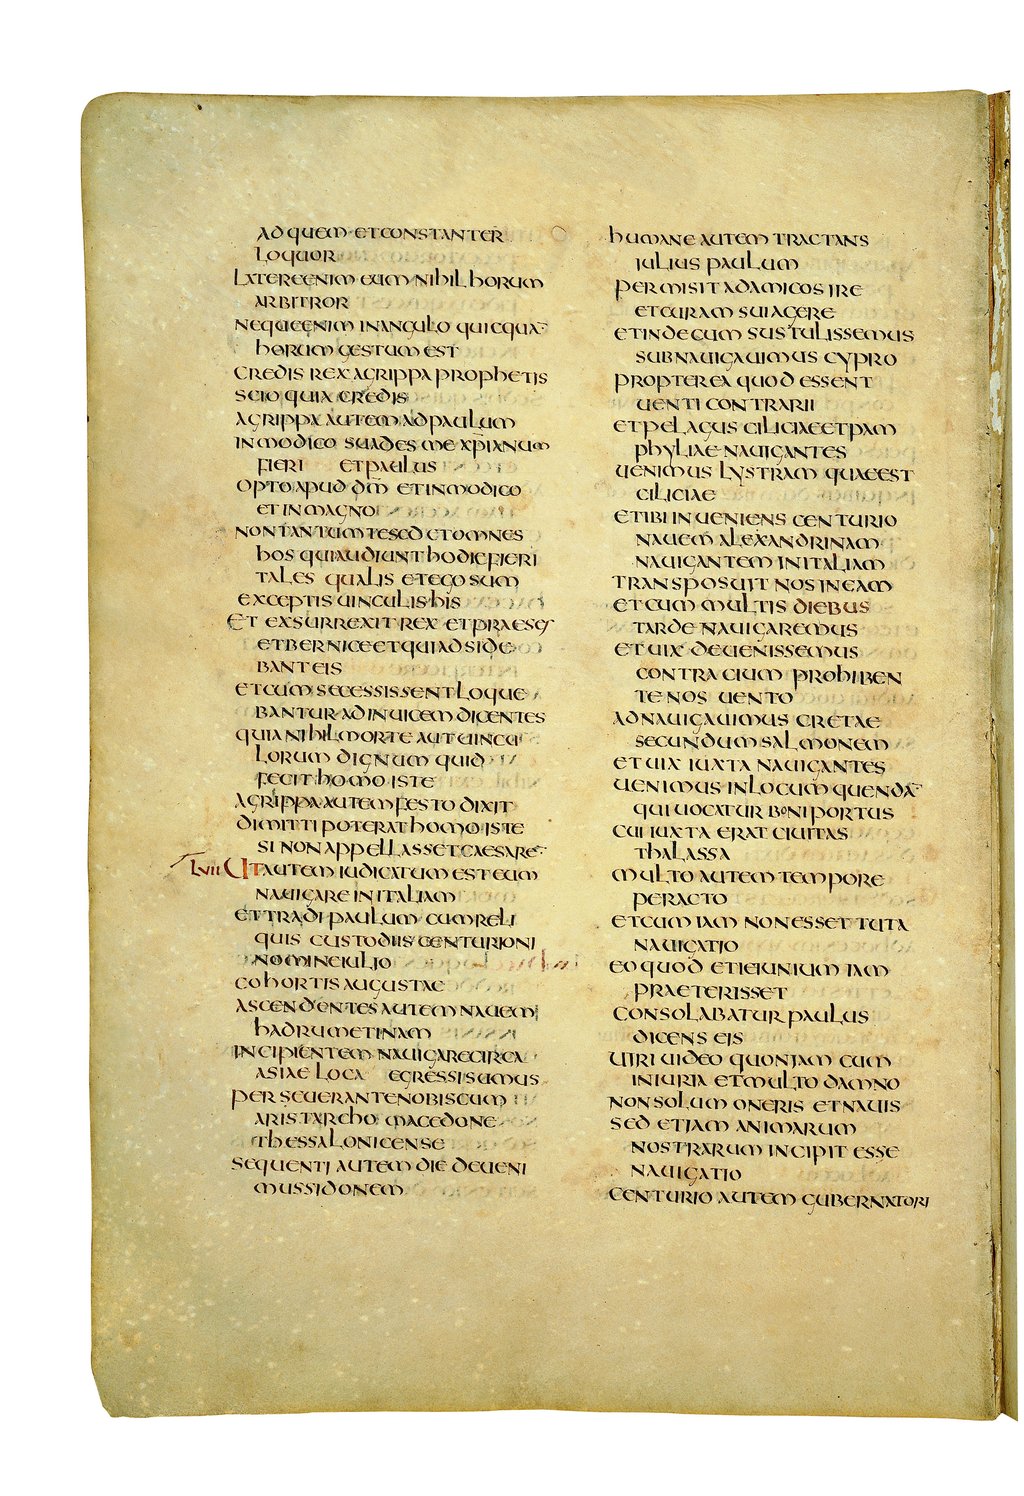 AD QUEM ET CONSTANTER
LOQUOR
LATERE ENIM EUM NIHIL HORUM
ARBITROR
NEQUE ENIM IN ANGULO QUICQUA̅
HORUM GESTUM EST
CREDIS REX AGRIPPA PROPHETIS
SCIO QUIA CREDIS
AGRIPPA AUTEM AD PAULUM
IN MODICO SUADES ME XP̅IANUM
FIERI ET PAULUS
OPTO APUD DM̅ ET IN MODICO
ET IN MAGNO
NON TANTUM TE SED ET OMNES
HOS QUI AUDIUNT HODIE FIERI
TALES QUALIS ET EGO SUM
EXCEPTIS UINCULIS HIS
ET EXSURREXIT REX ET PRAESES
ET BERNICE ET QUI ADSIDE
BANT EIS
ET CUM SECESSISSENT LOQUE
BANTUR AD INUICEM DICENTES
QUIA NIHIL MORTE AUT UINCU
LORUM DIGNUM QUID
FECIT HOMO ISTE
AGRIPPA AUTEM FESTO DIXIT
DIMITTI POTERAT HOMO ISTE
SI NON APPELLASSET CAESARE̅
LVII UT AUTEM IUDICATUM EST EUM
NAUIGARE IN ITALIAM
ET TRADI PAULUM CUM RELI
QUIS CUSTODIIS CENTURIONI
NOMINE IULIO
COHORTIS AUGUSTAE
ASCENDENTES AUTEM NAUEM
HADRUMETINAM
INCIPIENTEM NAUIGARE CIRCA
ASIAE LOCA EGRESSI SUMUS
PERSEUERANTE NOBISCUM
ARISTARCHO MACEDONE
THESSALONICENSE
SEQUENTI AUTEM DIE DEUENI
MUS SIDONEM
HUMANE AUTEM TRACTANS
IULIUS PAULUM
PERMISIT AD AMICOS IRE
ET CURAM SUI AGERE
ET INDE CUM SUSTULISSEMUS
SUBNAUIGAUIMUS CYPRO
PROPTEREA QUOD ESSENT
UENTI CONTRARII
ET PELAGUS CILICIAE ET PAM
PHYLIAE NAUIGANTES
UENIMUS LYSTRAM QUAE EST
CILICIAE
ET IBI INUENIENS CENTURIO
NAUEM ALEXANDRINAM
NAUIGANTEM IN ITALIAM
TRANSPOSUIT NOS IN EAM
ET CUM MULTIS DIEBUS
TARDE NAUIGAREMUS
ET UIX DEUENISSEMUS
CONTRA CIUM PROHIBEN
TE NOS UENTO
ADNAUIGAUIMUS CRETAE
SECUNDUM SALMONEM
ET UIX IUXTA NAUIGANTES
UENIMUS IN LOCUM QUENDA̅
QUI UOCATUR BONI PORTUS
CUI IUXTA ERAT CIUITAS
THALASSA
MULTO AUTEM TEMPORE
PERACTO
ET CUM IAM NON ESSET TUTA
NAUIGATIO
EO QUOD ET IEIUNIUM IAM
PRAETERISSET
CONSOLABATUR PAULUS
DICENS EIS
UIRI UIDEO QUONIAM CUM
INIURIA ET MULTO DAMNO
NON SOLUM ONERIS ET NAUIS
SED ETIAM ANIMARUM
NOSTRARUM INCIPIT ESSE
NAUIGATIO
CENTURIO AUTEM GUBERNATORI